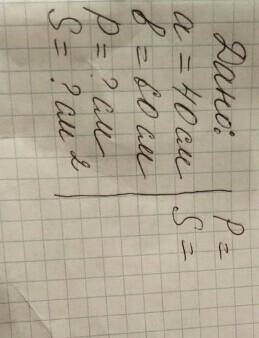 Дано:
a = 40 см
в = 60 см
P = ? см
S = ? см 2
P =
S =